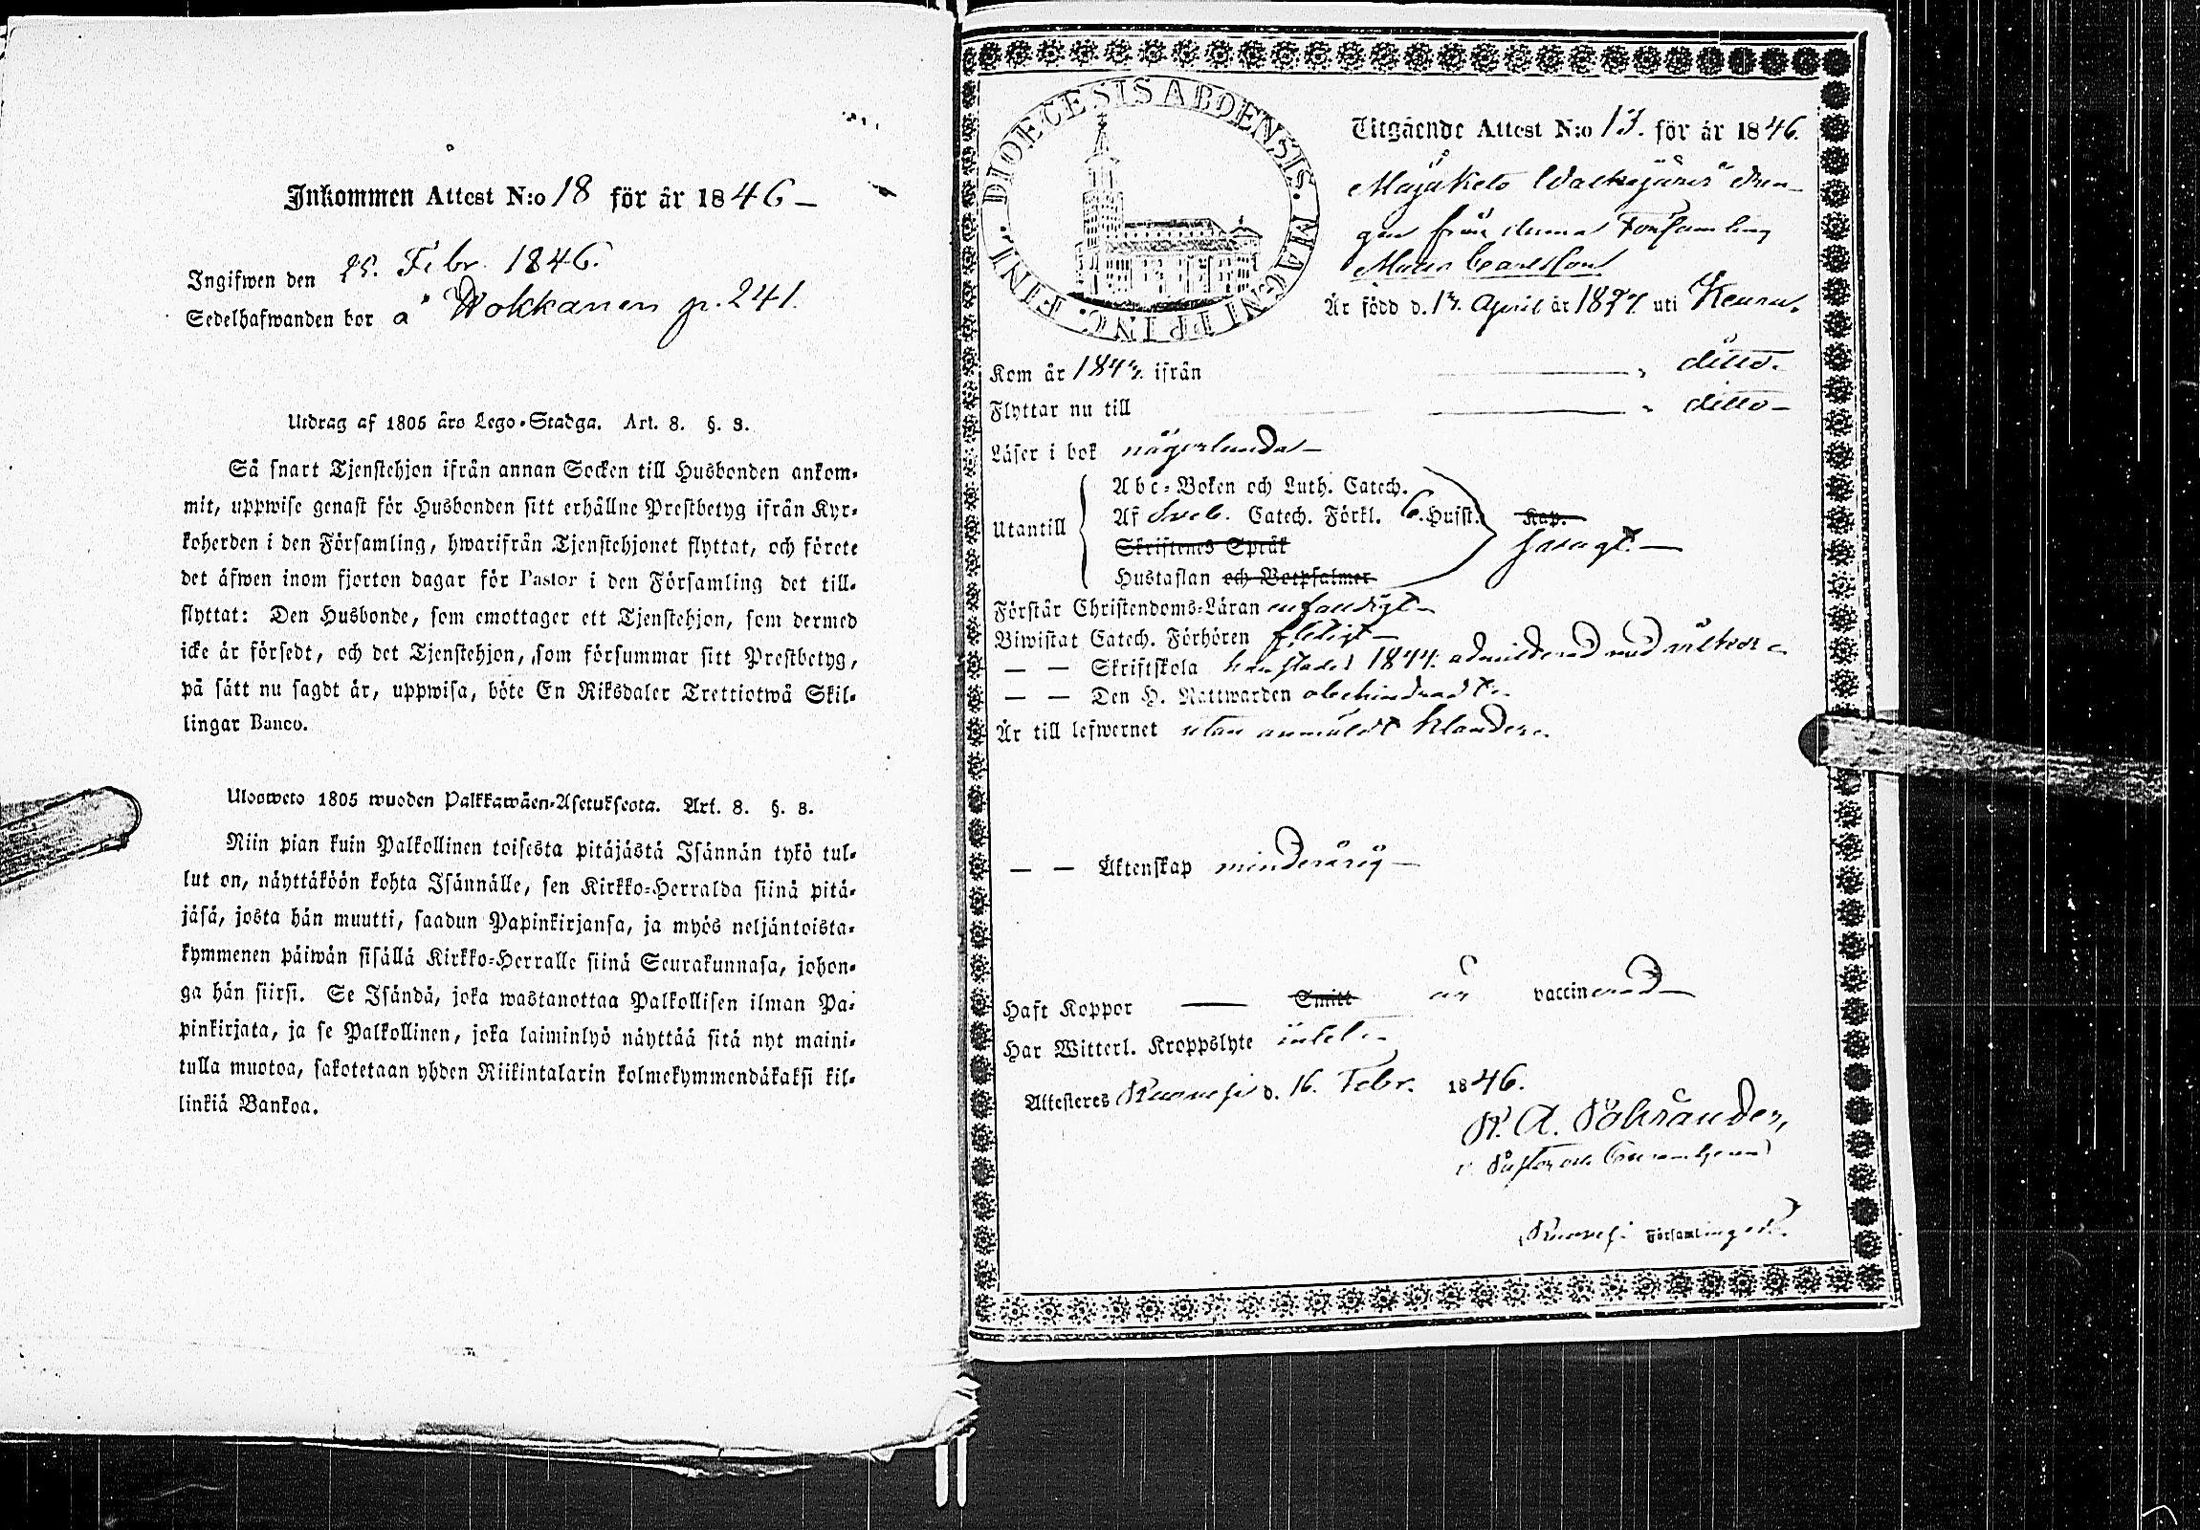 Inkommen Attest N:o 18 för år 1846
Ingifwen den 25. Febr. 1846.
Sedelhafwanden bor å Wokkanen p. 241.
Utdrag af 1805 års Lego-Stadga. Art. 8. §. 8.
Så snart Tjenstehjon ifrån annan Socken till Husbonden ankom-
mit, uppwise genast för Husbonden sitt erhållne Prestbetyg ifrån Kyr-
koherden i den Församling, hwarifrån Tjenstehjonet flyttat, och förete
det äfwen inom fjorton dagar för Pastor i den Församling det till-
flyttat: Den Husbonde, som emottager ett Tjenstehjon, som dermed
icke är försedt, och det Tjenstehjon, som försummar sitt Prestbetyg,
på sätt nu sagdt är, uppwisa, böte En Riksdaler Trettiotwå Skil-
lingar Banco.
Ulosweto 1805 wuoden Palkkawäen-Asetuksesta. Art. 8. §. 8.
Niin pian kuin Palkollinen toisesta pitäjästä Isännän tykö tul-
lut on, näyttäköön kohta Isännälle, sen Kirkko-Herralda siinä pitä-
jäsä, josta hän muutti, saadun Papinkirjansa, ja myös neljäntoista-
kymmenen päiwän sisällä Kirkko-Herralle siinä Seurakunnasa, johon-
ga hän siirsi. Se Isändä, joka wastanottaa Palkollisen ilman Pa-
pinkirjata, ja se Palkollinen, joka laiminlyö näyttää sitä nyt maini-
tulla muotoa, sakotetaan yhden Riikintalarin kolmekymmendäkaksi kil-
linkiä Bankoa.
DIOECESIS ABOENSIS. MAGNI PRINC. FINL.
Utgående Attest N:o 13. för år 1846.
Drän-
gen från denna Församling
Matts Carlsson
Är född d. 13. April år 1827. uti Keuru.
Kom år 1843. ifrån ditto.
Flyttar nu till ditto
Läser i bok någorlunda
Utantill
Abc-Boken och Luth. Catech.
Af Sveb. Catech. Förkl. 6. Hufst. Kap.
Skriftenes Språk
Hustaflan och Botpsalmer
Förstår Christendoms-Läran enfaldigt
Biwistat Catech. Förhören flitigt
— — Skriftskola 1844. admitterad med
— — Den H. Nattwarden obehindradt.
Är till lefwernet utan anmäldt klander.
— — Äktenskap minderårig
Haft Koppor — Smitt är vaccinerad
Har Witterl. Kroppslyte intet.
Attesteres Ruovesi d. 16. Febr. 1846.
Ruovesi Församlinger.